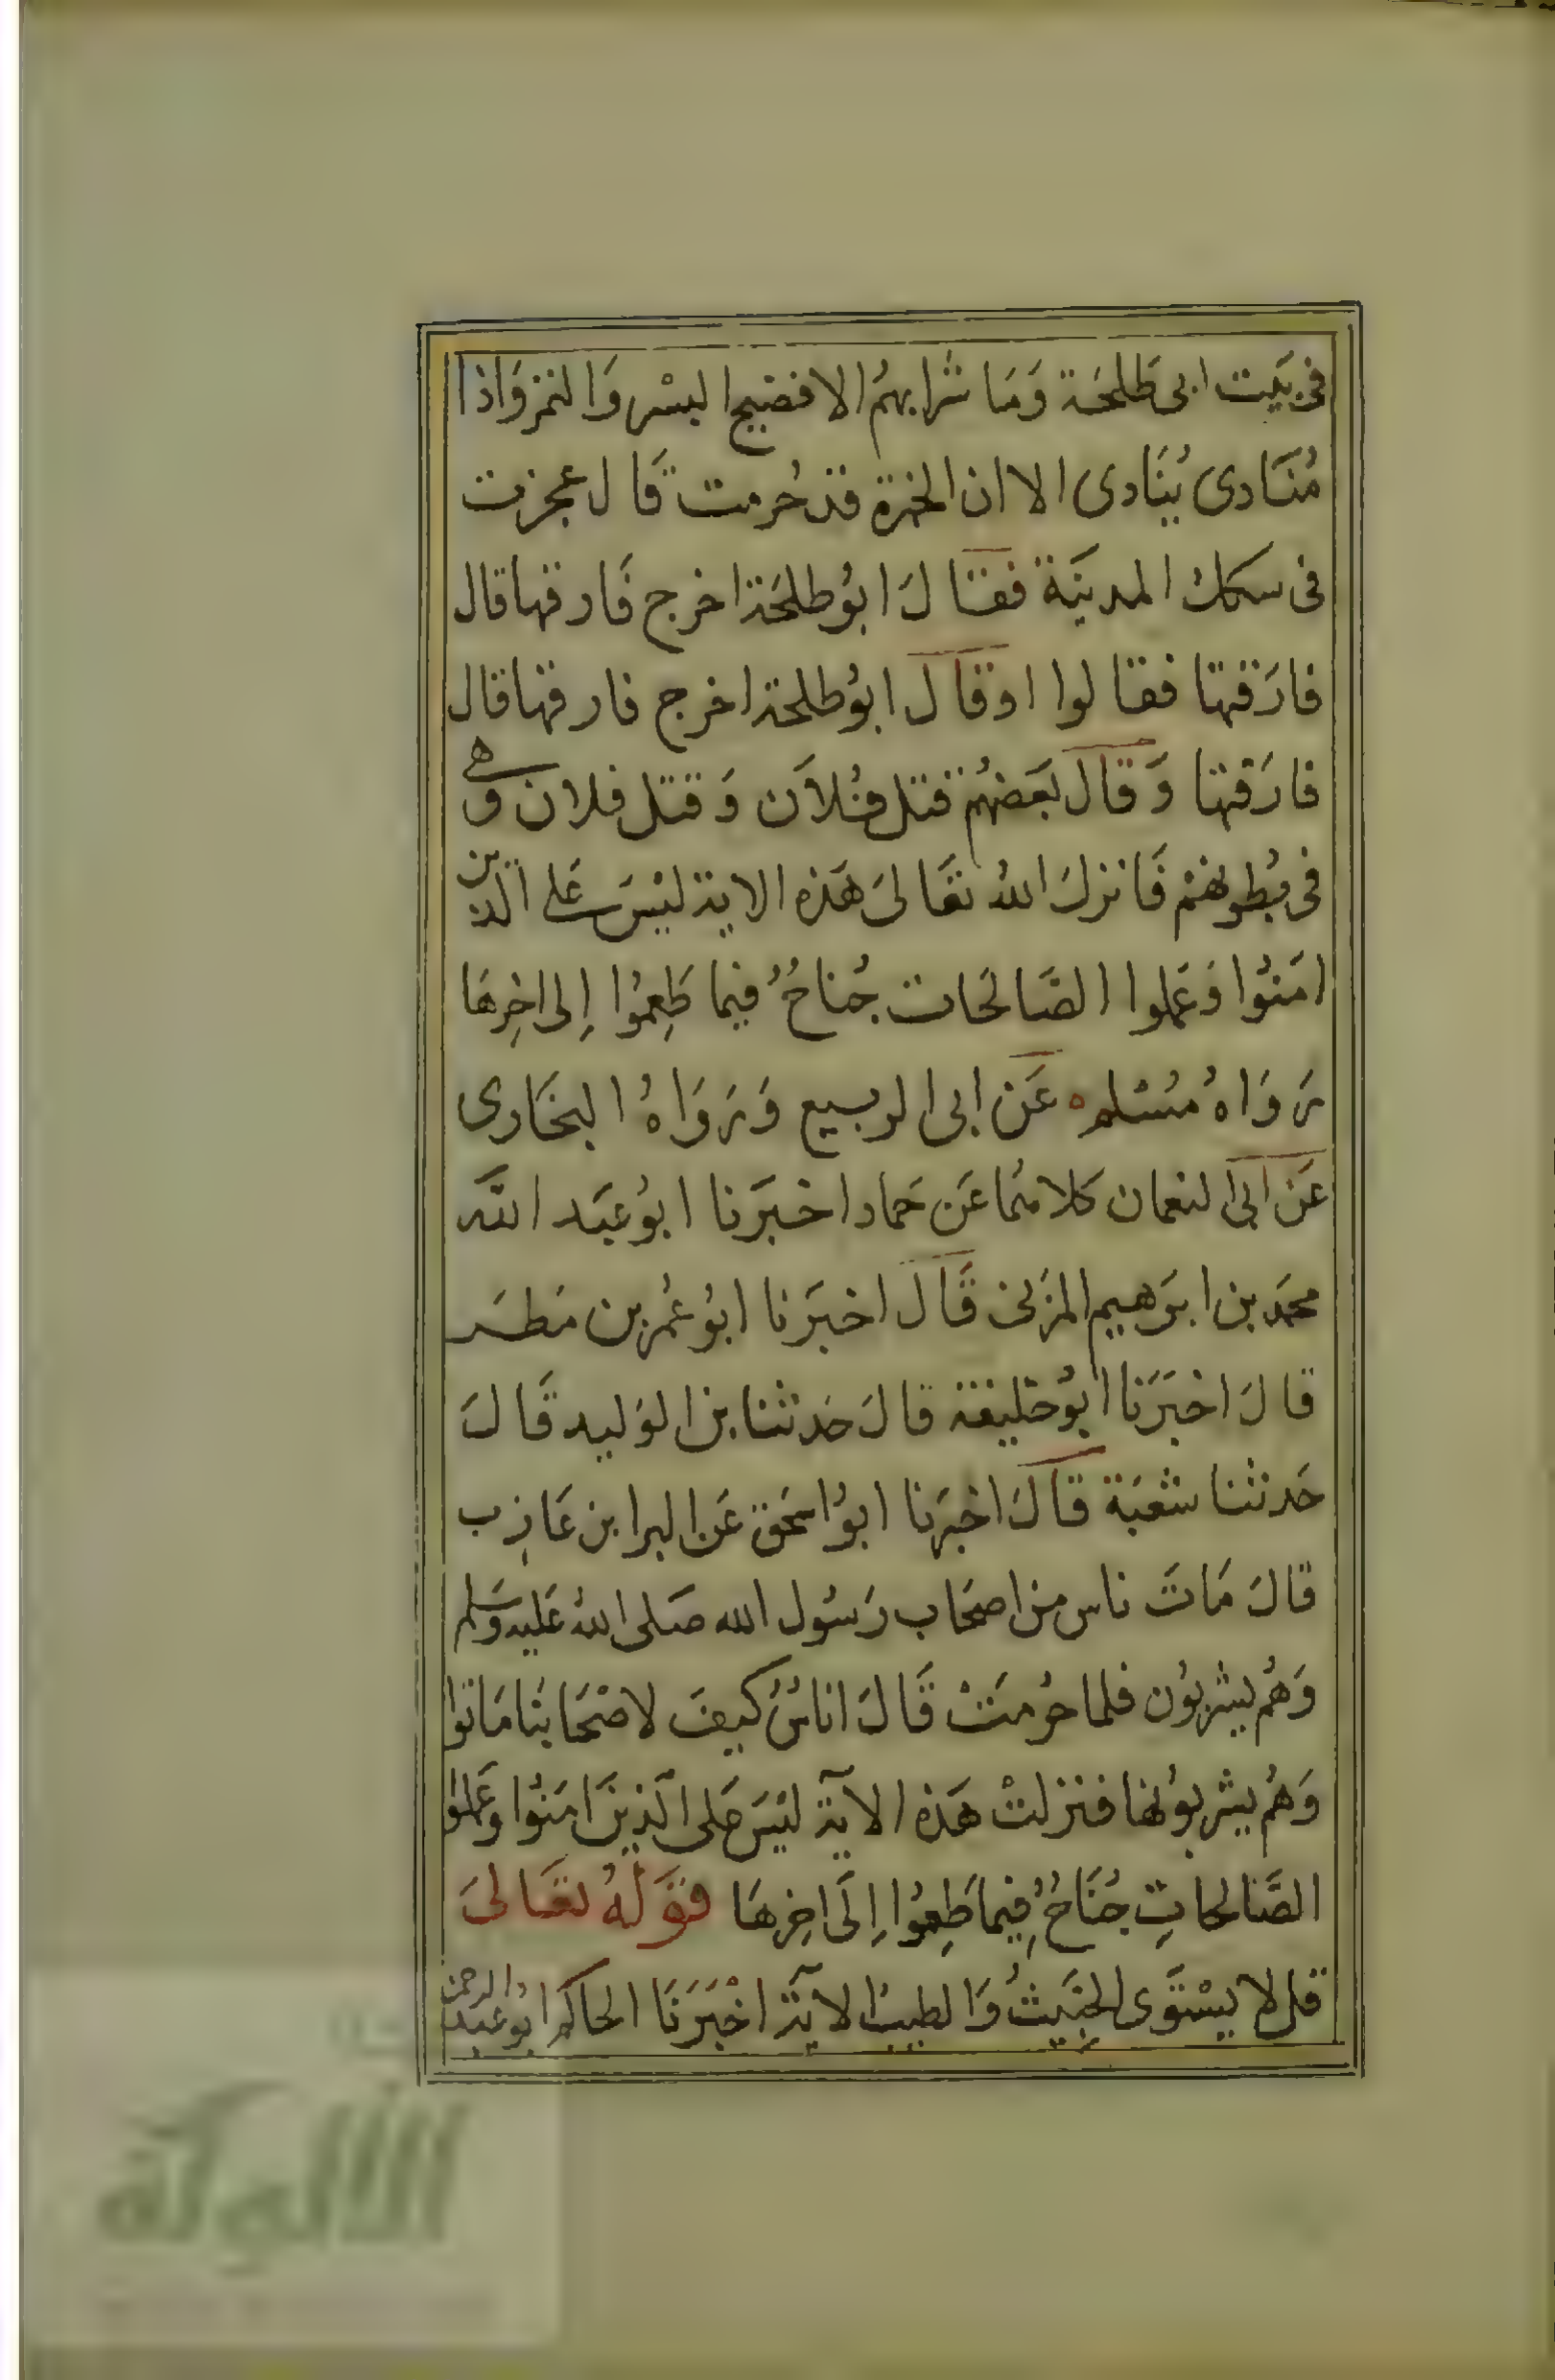 في بَيت ابي طَلحَة وَمَا شرابهمُ الا فضيج البسْر وَالتمر وَاذا
مُنَادى يُنَادى الا ان الخمرة قد حُرمت قَال فجرت
فى سكك المدينَة فقال ابوُ طلحَة اخرج فَارقها قال
فارَقتها فقالوا اوقال ابوُ طلحة اخرج فارقها قال
فارَقتها وَقال بَعَضهُم قتل فُلاَن وَقتل فلان وهى
فى بُطونهمْ فَانزلَ اللهُ تعَالىَ هَذه الاية ليْسَ عَلى الذين
امَنوُا وَعَملوا الصَالحَات جُناحٌ فيما طَعِموُا اِلى اخِرهَا
رَوَاهُ مُسْلم عَن ابى الربيع وَرَوَاهُ البخَارى
عَن ابى النعمان كلاهُما عَن حَماد اخبَرَنا ابوُ عَبَد اللَّه
محمَد بن ابرَهيم المزَنى قَالَ اخبَرَنا ابوُ عُمر بن مَطَر
قالَ اخبَرَنا ابوُ خليفة قالَ حَدثنا بن الوَليد قَالَ
حَدثنا شعْبَة قالَ اخبَرنا ابوُ اسحَق عَن البرا بن عَازِب
قالَ مَاتَ ناس من اصحَاب رَسُول الله صَلى اللهُ عَليه وَسَلم
وَهُم يشربوُن فلما حُرمَتْ قَالَ اناسٌ كيفَ لاصْحَابنَا مَاتوا
وَهُم يشربوُنها فنزلتْ هَذه الآية ليْسَ عَلى الَذينَ امَنوُا وَعَملوُا
الصَّالحاتِ جُنَاحٌ فِيما طَعِموُا اِلَى اخِرهَا قوَلهُ تعَالىَ
قل لا يسْتَوى الخبَيثُ وَالطيبُ الآيَة اخْبَرَنَا الحاكم ابوُ عَبَد الرحمن